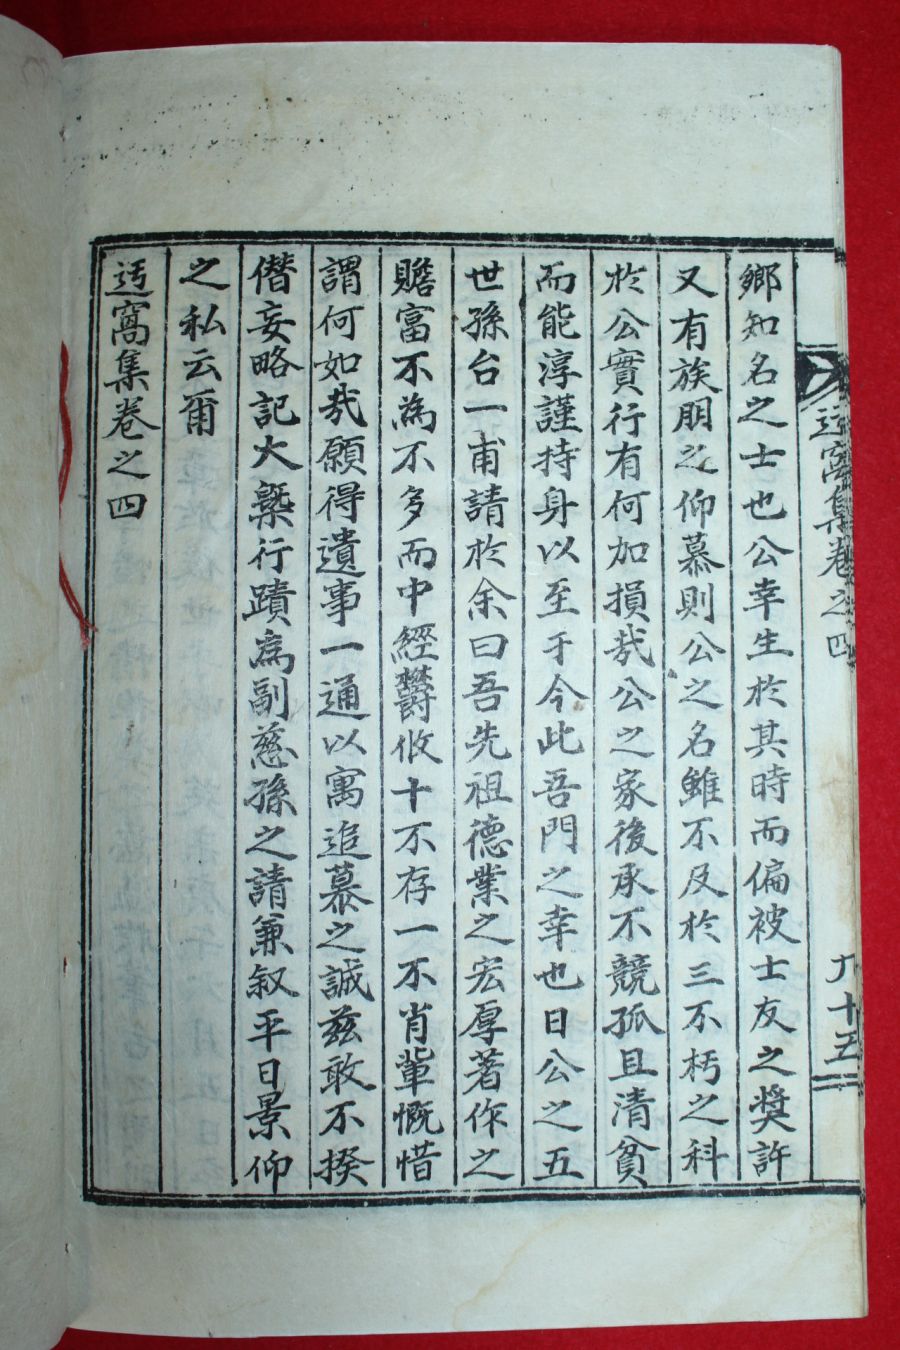 迃窩集卷之四
九十五
鄕知名之士也公幸生於其時而偏被士友之奬許
又有族朋之仰慕則公之名雖不及於三不朽之科
於公實行有何加損㢤公之家後承不競孤且清貧
而能淳謹持身以至于今此吾門之幸也日公之五
世孫台一甫請於余曰吾先祖德業之宏厚著作之
贍富不為不多而中經欝攸十不存一不肖軰慨惜
謂何如㢤願得遺事一通以寓追慕之誠玆敢不揆
僭妄略記大槩行蹟爲副慈孫之請兼叙平日景仰
之私云爾
迃窩集卷之四